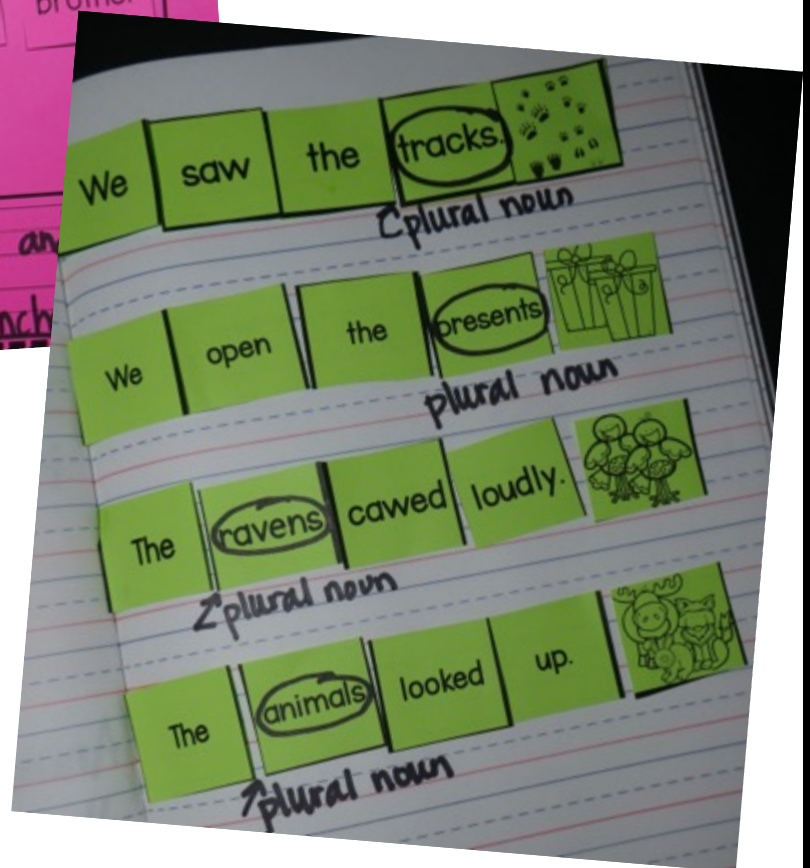 brother
an
nch
We saw the tracks.
plural noun
We open the presents
plural noun
The ravens cawed loudly.
plural noun
The animals looked up.
plural noun